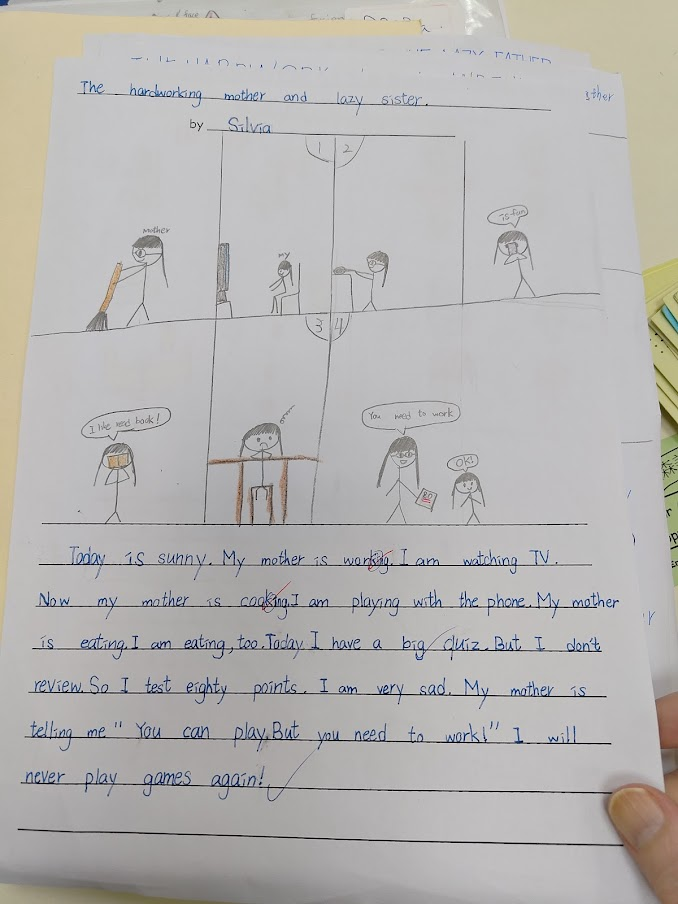 The hardworking mother and lazy sister.
by Silvia
1 2
mother
my
is fun
3 4
I like read book!
You need to work
OK!
80
Today is sunny. My mother is working. I am watching TV.
Now my mother is cooking. I am playing with the phone. My mother
is eating. I am eating, too. Today I have a big quiz. But I don't
review. So I test eighty points. I am very sad. My mother is
telling me " You can play. But you need to work!" I will
never play games again!